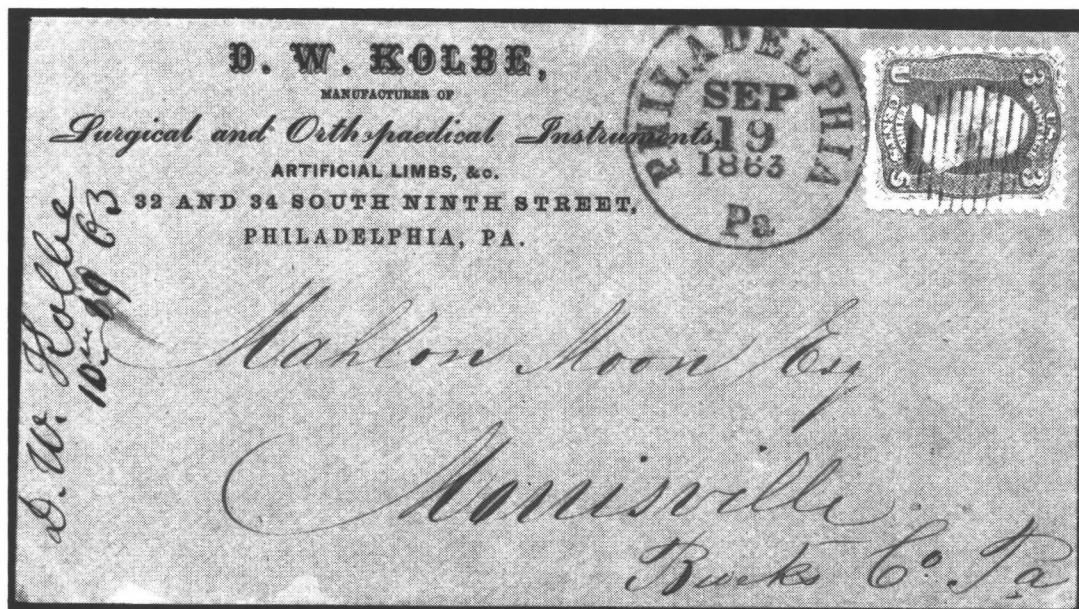 D. W. KOLBE,
MANUFACTURER OF
Surgical and Orthopaedical Instruments,
ARTIFICIAL LIMBS, &c.
32 AND 34 SOUTH NINTH STREET,
PHILADELPHIA, PA.
PHILADELPHIA
SEP
19
1863
Pa
U S
3 3
D. W. Kolbe
63
Mahlon Moon Esq
Morrisville
Bucks Co. Pa